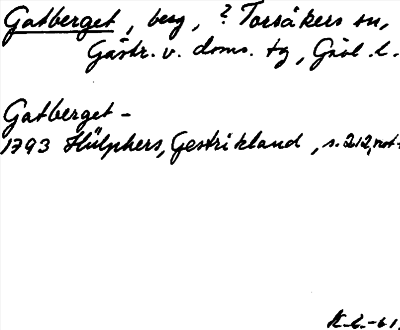 Gatberget, berg, ? Torsåkers sn,
Gästr. v. doms. tg, Gävl. l.
Gatberget -
1793 Hülphers, Gestrikland, s. 212, not.
K.L.-61.